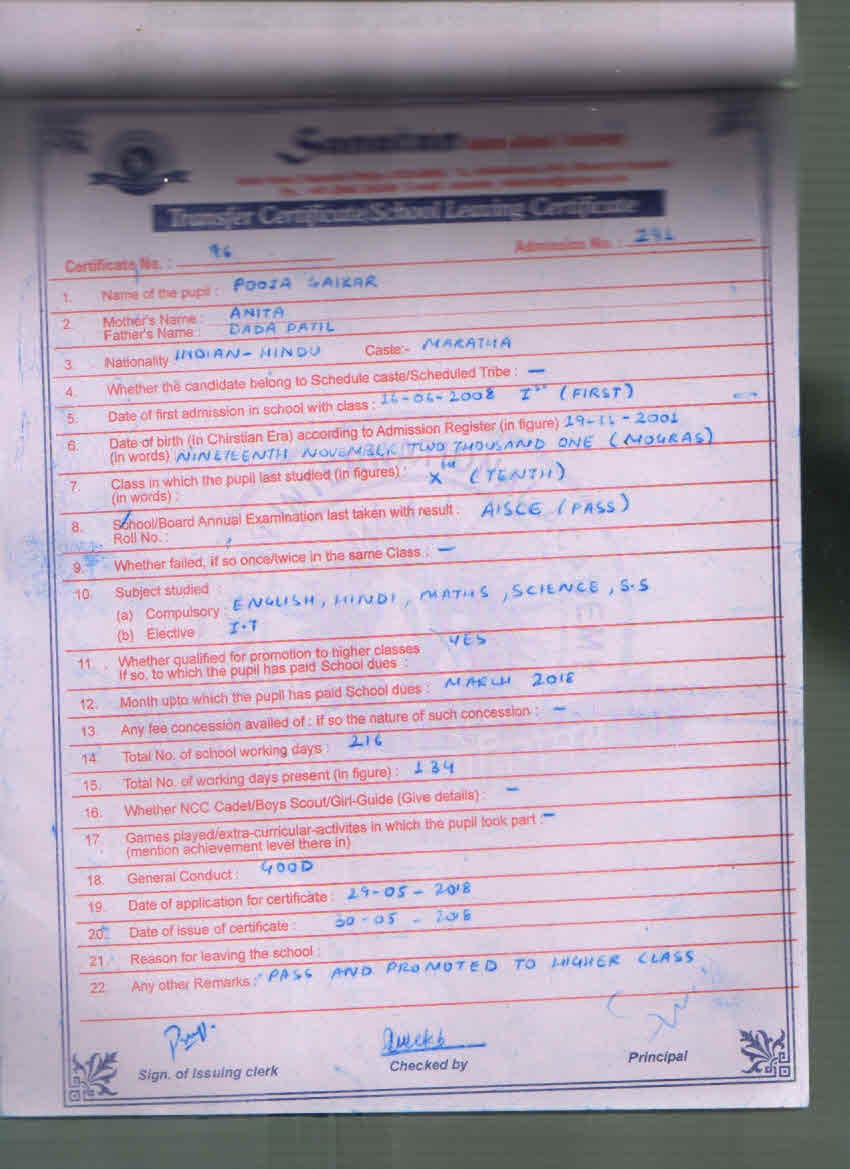 Transfer Certificate/School Leaving Certificate
Certificate No. : 96 Admission No. : 291
1. Name of the pupil : POOJA GAIKAR
2. Mother's Name : ANITA
Father's Name : DADA PATIL
3. Nationality INDIAN - HINDU Caste:- MARATHA
4. Whether the candidate belong to Schedule caste/Scheduled Tribe : —
5. Date of first admission in school with class : 16-06-2008 Ist (FIRST)
6. Date of birth (in Chirstian Era) according to Admission Register (in figure) 19-11-2001
(in words) NINETEENTH NOVEMBER TWO THOUSAND ONE (MOGRAS)
7. Class in which the pupil last studied (in figures) : Xth (TENTH)
(in words) :
8. School/Board Annual Examination last taken with result : AISCE (PASS)
Roll No. :
9. Whether failed, if so once/twice in the same Class : —
10. Subject studied :
(a) Compulsory : ENGLISH, HINDI, MATHS, SCIENCE, S.S
(b) Elective I.T
11. Whether qualified for promotion to higher classes YES
If so, to which the pupil has paid School dues :
12. Month upto which the pupil has paid School dues : MARCH 2018
13. Any fee concession availed of : if so the nature of such concession : —
14. Total No. of school working days : 216
15. Total No. of working days present (in figure) : 134
16. Whether NCC Cadet/Boys Scout/Girl-Guide (Give details) : —
17. Games played/extra-curricular-activites in which the pupil took part :—
(mention achievement level there in)
18. General Conduct : GOOD
19. Date of application for certificate : 29-05-2018
20. Date of issue of certificate : 30-05-2018
21. Reason for leaving the school :
22. Any other Remarks : PASS AND PROMOTED TO HIGHER CLASS
Sign. of Issuing clerk Checked by Principal